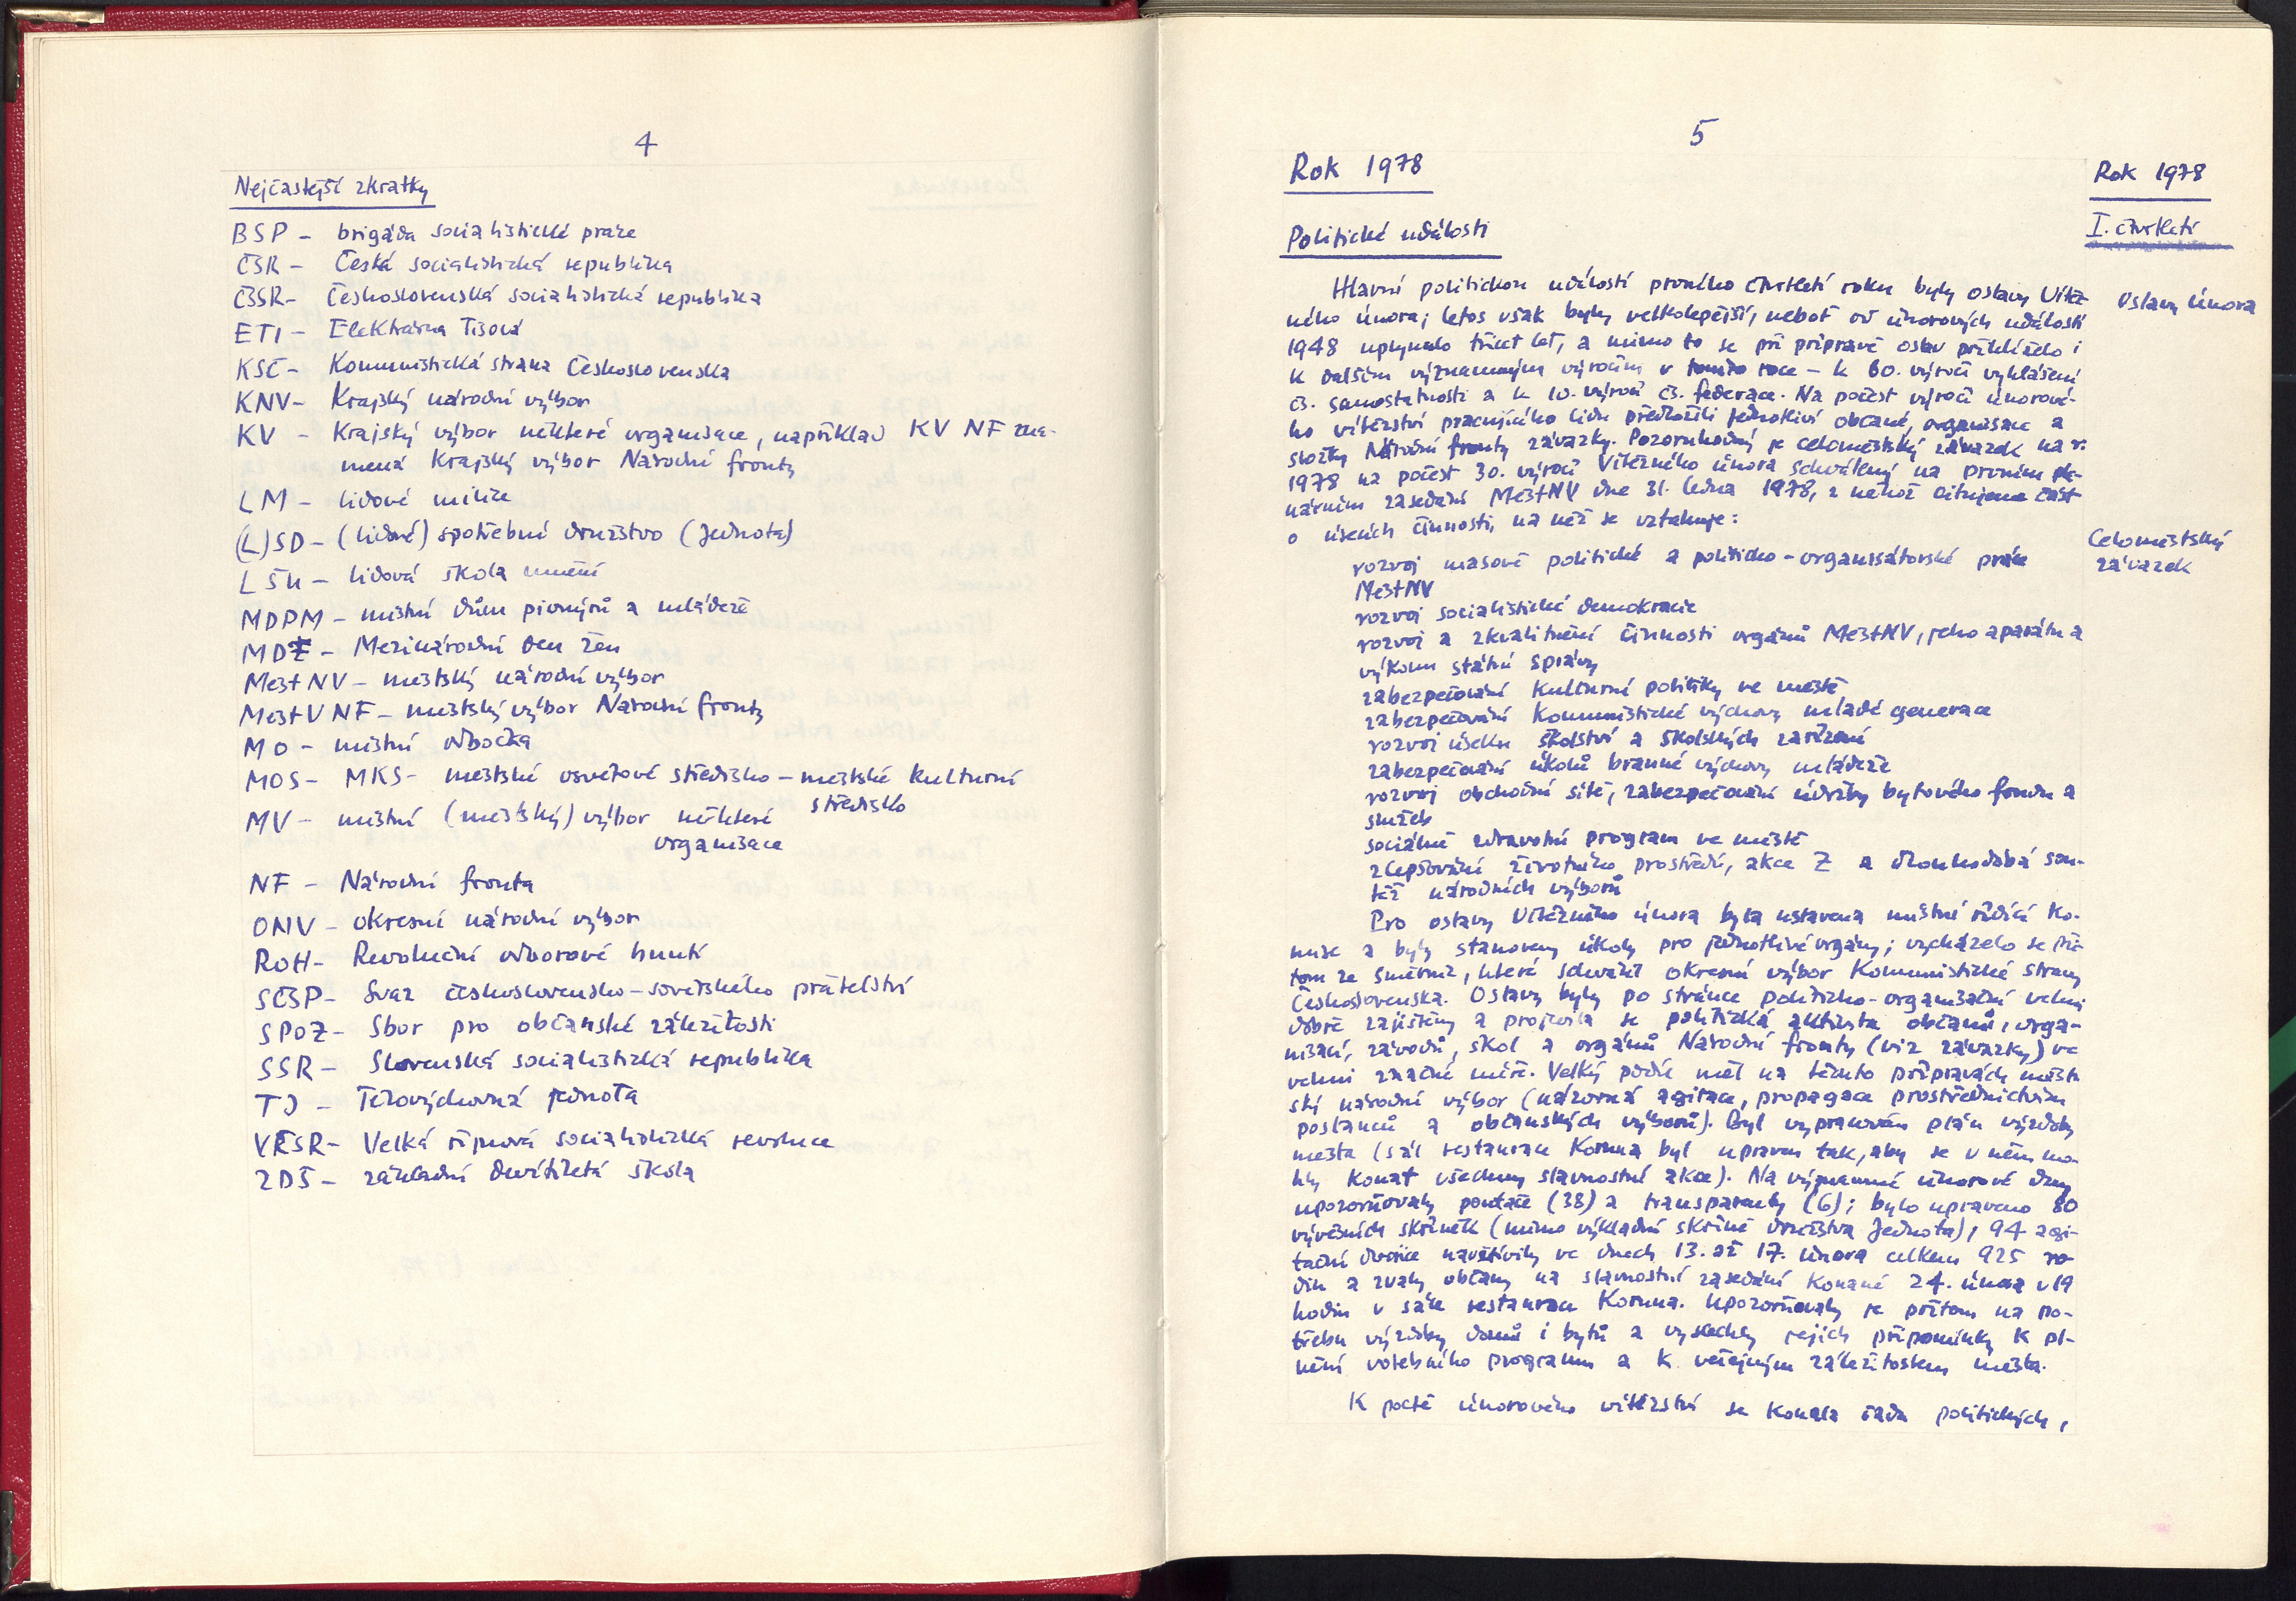 4
Nejčastější zkratky
BSP - brigáda socialistické práce
ČSR - Česká socialistická republika
ČSSR - Československá socialistická republika
ETI - Elektrárna Tisová
KSČ - Komunistická strana Československa
KNV - Krajský národní výbor
KV - Krajský výbor některé organisace, například KV NF zna-
mená Krajský výbor Národní fronty
LM - lidové milice
(L)SD - (lidové) spotřební družstvo (Jednota)
LŠU - lidová škola umění
MDPM - místní dům pionýrů a mládeže
MDŽ - Mezinárodní den žen
MěstNV - městský národní výbor
MěstVNF - městský výbor Národní fronty
MO - místní odbočka
MOS - MKS - městské osvětové středisko - městské kulturní
středisko
MV - místní (městský) výbor některé
organisace
NF - Národní fronta
ONV - okresní národní výbor
ROH - Revoluční odborové hnutí
SČSP - Svaz československo-sovětského přátelství
SPOZ - Sbor pro občanské záležitosti
SSR - Slovenská socialistická republika
TJ - Tělovýchovná jednota
VŘSR - Velká říjnová socialistická revoluce
ZDŠ - základní devítiletá škola
5
Rok 1978
Rok 1978
I. čtvrtletí
Politické události
Hlavní politickou událostí prvního čtvrtletí roku byly oslavy Vítěz-
ného února; letos však byly velkolepější, neboť od únorových událostí
Oslavy února
1948 uplynulo třicet let, a mimo to se při přípravě oslav přihlíželo i
k dalším významným výročím v tomto roce - k 60. výročí vyhlášení
čs. samostatnosti a k 10. výročí čs. federace. Na počest výročí únorové-
ho vítězství pracujícího lidu předložili jednotliví občané, organisace a
složky Národní fronty závazky. Pozoruhodný je celoměstský závazek na r.
1978 na počest 30. výročí Vítězného února schválený na prvním ple-
nárním zasedání MěstNV dne 31. ledna 1978, z něhož citujeme část
o úsecích činnosti, na něž se vztahuje:
Celoměstský
závazek
rozvoj masově politické a politicko-organisátorské práce
MěstNV
rozvoj socialistické demokracie
rozvoj a zkvalitnění činnosti orgánů MěstNV, jeho aparátu a
výkonu státní správy
zabezpečování kulturní politiky ve městě
zabezpečování komunistické výchovy mladé generace
rozvoj úseku školství a školských zařízení
zabezpečování úkolů branné výchovy mládeže
rozvoj obchodní sítě, zabezpečování údržby bytového fondu a
služeb
sociálně zdravotní program ve městě
zlepšování životního prostředí, akce Z a dlouhodobá sou-
těž národních výborů
Pro oslavy Vítězného února byla ustavena místní řídící ko-
mise a byly stanoveny úkoly pro jednotlivé orgány; vycházelo se při-
tom ze směrnic, které schválil okresní výbor Komunistické strany
Československa. Oslavy byly po stránce politicko-organisační velmi
dobře zajištěny a projevila se politická aktivita občanů, orga-
nisací, závodů, škol a orgánů Národní fronty (viz závazky) ve
velmi značné míře. Velký podíl měl na těchto přípravách měst-
ský národní výbor (názorná agitace, propagace prostřednictvím
poslanců a občanských výborů). Byl vypracován plán výzdoby
města (sál restaurace Koruna byl upraven tak, aby se v něm mo-
hly konat všechny slavnostní akce). Na významné únorové dny
upozorňovaly poutače (38) a transparenty (6); bylo upraveno 80
vývěsních skříněk (mimo výkladní skříně družstva Jednota), 94 agi-
tační dvojice navštívily ve dnech 13. až 17. února celkem 925 ro-
din a zvaly občany na slavnostní zasedání konané 24. února v 19
hodin v sále restaurace Koruna. Upozorňovaly je přitom na po-
třebu výzdoby domů i bytů a vyslechly jejich připomínky k pl-
nění volebního programu a k veřejným záležitostem města.
K poctě únorového vítězství se konala řada politických,